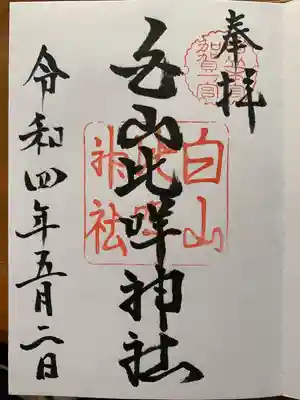 奉拝
白山比咩神社
令和四年五月二日
白山
比咩
神社